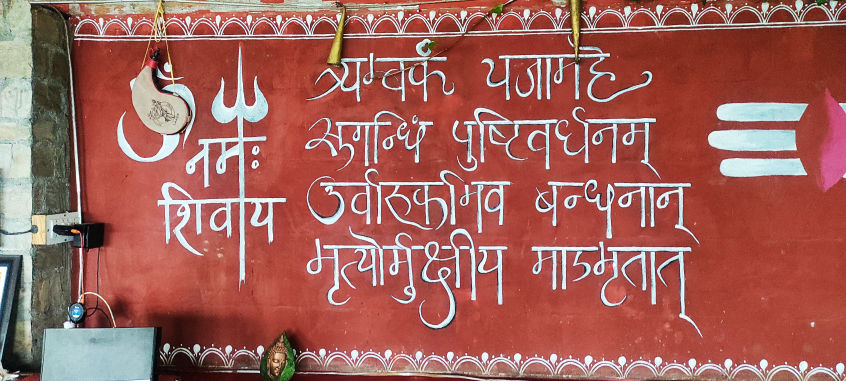 ॐ
नमः
शिवाय
त्र्यम्बकं यजामहे
सुगन्धिं पुष्टिवर्धनम्
उर्वारुकमिव बन्धनान्
मृत्योर्मुक्षीय माऽमृतात्